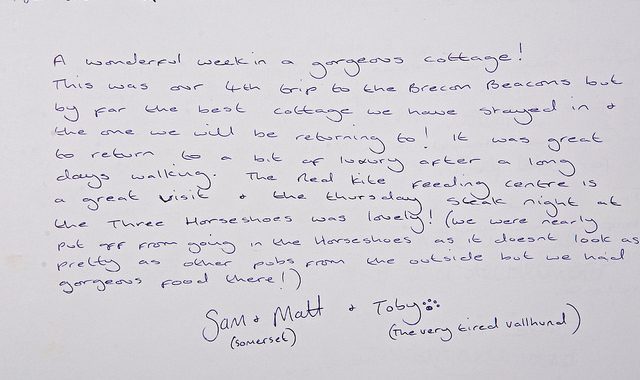 A wonderful week in a gorgeous cottage!
This was our 4th trip to the Brecon Beacons but
by far the best cottage we have stayed in &
the one we will be returning to! It was great
to return to a bit of luxury after a long
days walking. The Red Kite feeding centre is
a great visit & the thursday steak night at
the Three Horseshoes was lovely! (we were nearly
put off from going in the Horseshoes as it doesnt look as
pretty as other pubs from the outside but we had
gorgeous food there!)
Sam & Matt & Toby
(somerset) (the very tired vallhund)